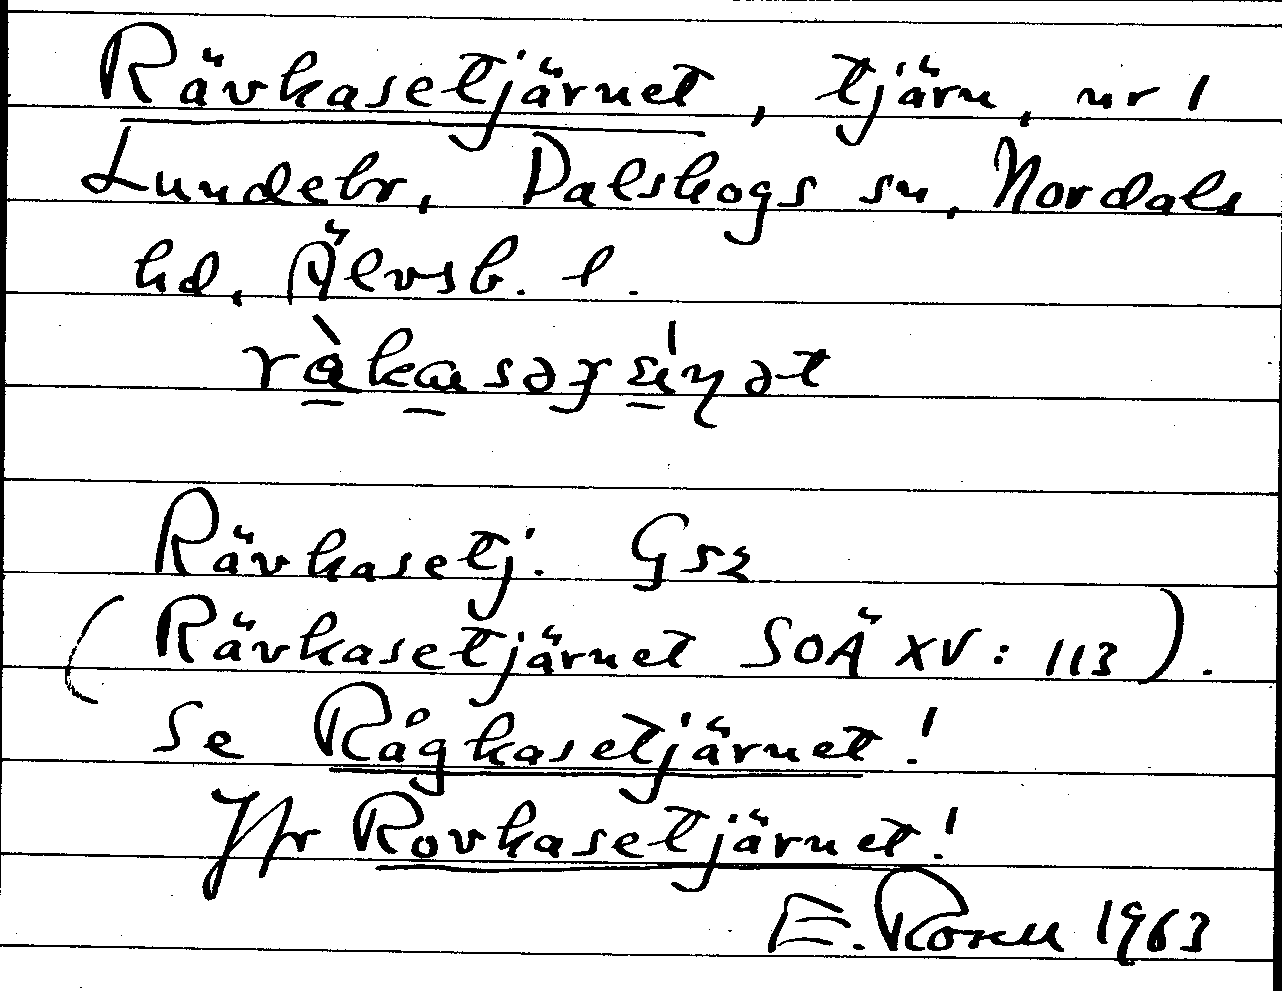 Rävkasetjärnet, tjärn, nr 1
Lundebr, Dalskogs sn, Nordals
hd, Älvsb. l.
Rävkasetj. Gsz
(Rävkasetjärnet SOÄ XV: 113).
Se Rågkasetjärnet!
Jfr Rovkasetjärnet!
E. 1963